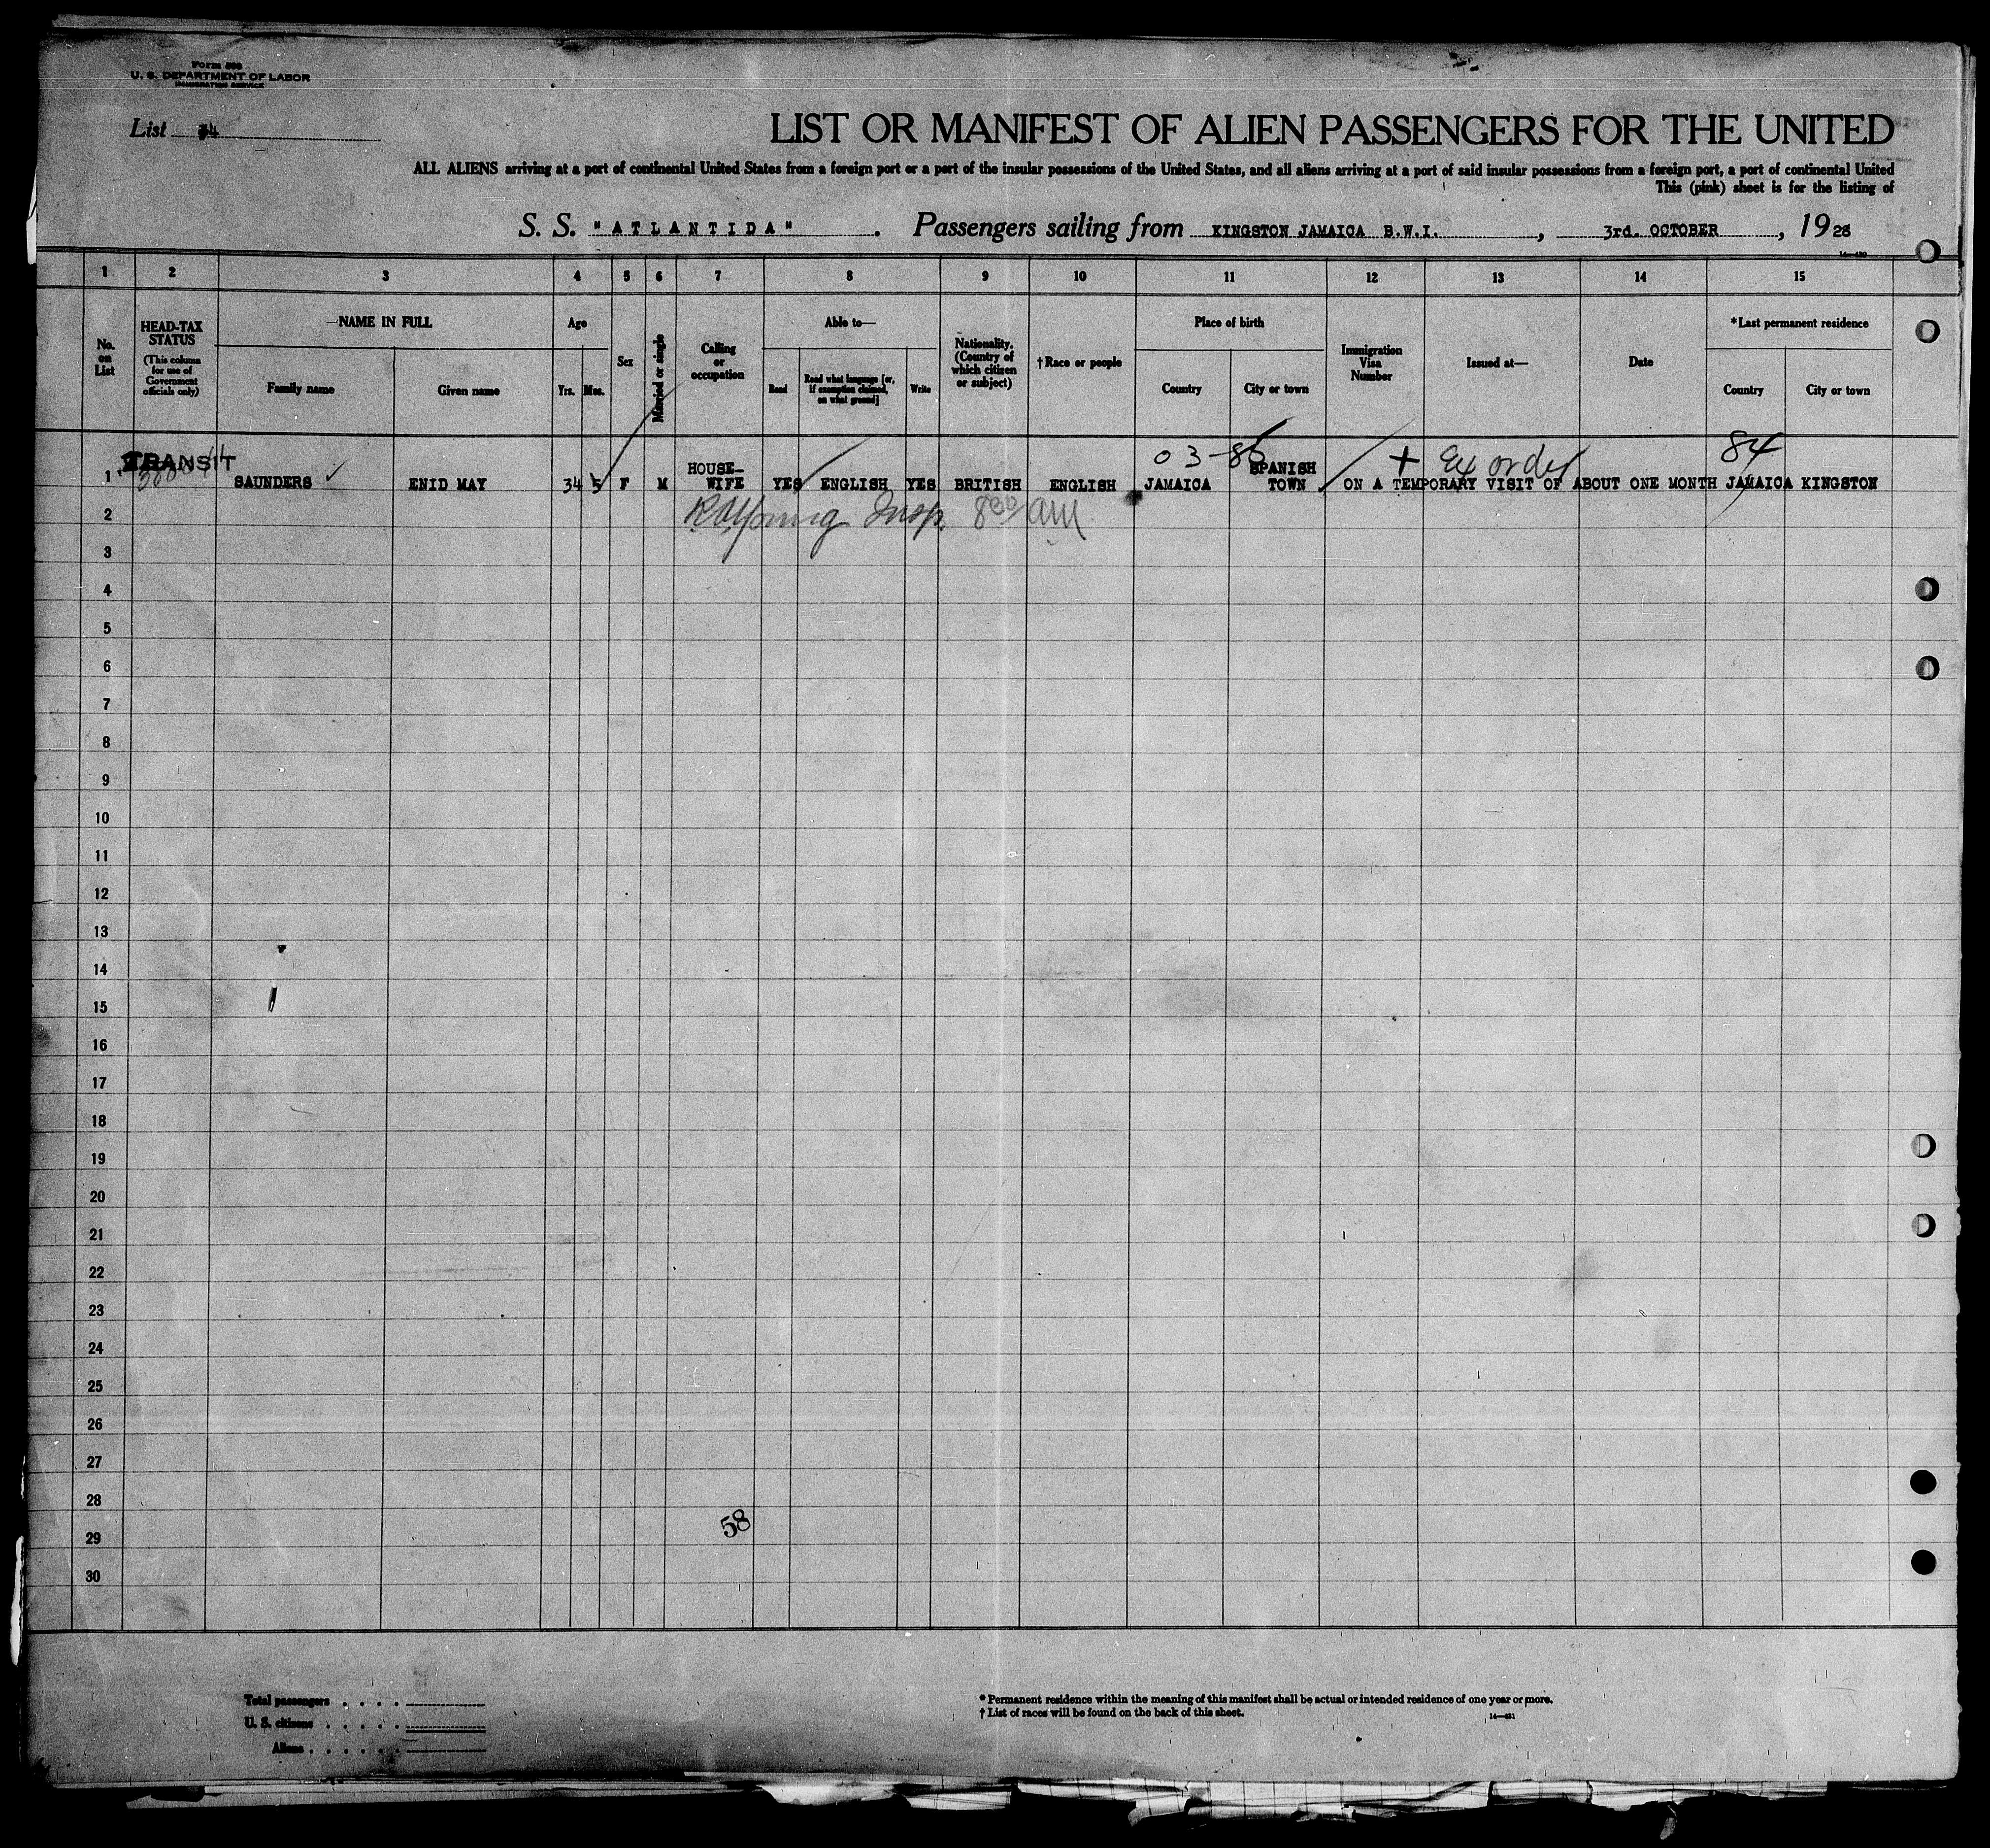 Form 500
U. S. DEPARTMENT OF LABOR
IMMIGRATION SERVICE
List 34
LIST OR MANIFEST OF ALIEN PASSENGERS FOR THE UNITED
ALL ALIENS arriving at a port of continental United States from a foreign port or a port of the insular possessions of the United States, and all aliens arriving at a port of said insular possessions from a foreign port, a port of continental United
This (pink) sheet is for the listing of
S. S. "ATLANTIDA". Passengers sailing from KINGSTON JAMAICA B.W.I., 3rd. OCTOBER, 1928
1 2 3 4 5 6 7 8 9 10 11 12 13 14 15
No. on List
HEAD-TAX STATUS (This column for use of Government officials only)
NAME IN FULL
Family name Given name
Age
Yrs. Mos.
Sex
Married or single
Calling or occupation
Able to—
Read Read what language [or, if exemption claimed, on what ground] Write
Nationality. (Country of which citizen or subject)
†Race or people
Place of birth
Country City or town
Immigration Visa Number
Issued at—
Date
*Last permanent residence
Country City or town
03-86 + Ex order 84
1 TRANSIT SAUNDERS ENID MAY 34 5 F M HOUSE-WIFE YES ENGLISH YES BRITISH ENGLISH JAMAICA SPANISH TOWN ON A TEMPORARY VISIT OF ABOUT ONE MONTH JAMAICA KINGSTON
2 Young Insp. 8 am
3
4
5
6
7
8
9
10
11
12
13
14
15
16
17
18
19
20
21
22
23
24
25
26
27
28
58
29
30
Total passengers
U. S. citizens
Aliens
* Permanent residence within the meaning of this manifest shall be actual or intended residence of one year or more.
† List of races will be found on the back of this sheet.
14—431